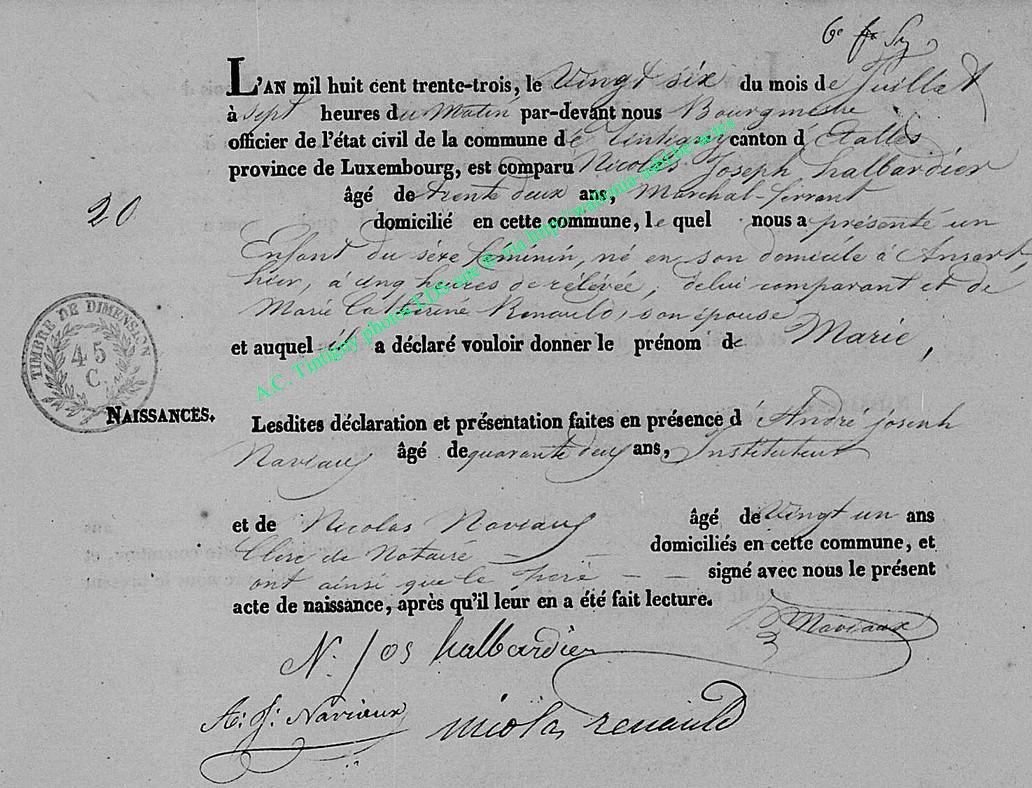 6e
L'AN mil huit cent trente-trois, le Vingt six du mois de Juillet
à Sept heures du Matin par-devant nous Bourgmestre
officier de l'état civil de la commune de Tintigny canton d'Etalle
province de Luxembourg, est comparu Nicolas Joseph halbardier
âgé de trente deux ans, Marchal-ferrant
20
domicilié en cette commune, le quel nous a présenté un
Enfant du sexe feminin, né en son domicile à Ansart,
hier, à cinq heures de rélévée, délui comparant et de
Marie Catherine Renauld, son épouse
TIMBRE DE DIMENSION
45
C.
et auquel il a déclaré vouloir donner le prénom de Marie,
NAISSANCES.
Lesdites déclaration et présentation faites en présence d'André joseph
Naviaux âgé de quarante deux ans, Instituteur
et de Nicolas Noviaux âgé de Vingt un ans
Clerc de Notaire domiciliés en cette commune, et
ont ainsi que le signé avec nous le présent
acte de naissance, après qu'il leur en a été fait lecture.
Naviaux
N. Jos halbardier
A: J: Naviaux
nicolas renauld